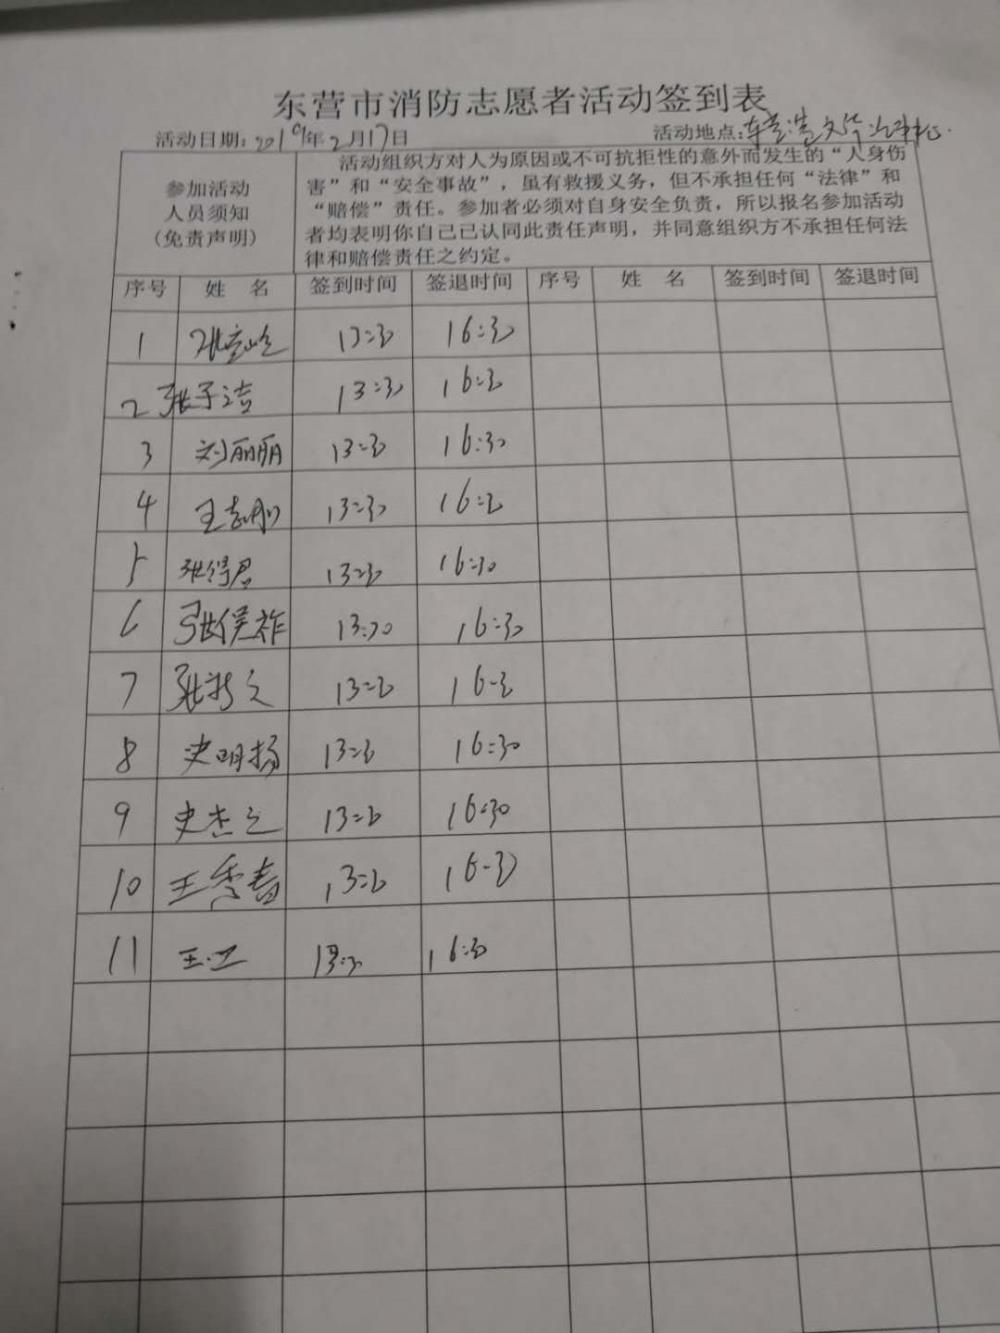 东营市消防志愿者活动签到表
活动日期:2019年2月17日 活动地点:
参加活动
人员须知
(免责声明)
活动组织方对人为原因或不可抗拒性的意外而发生的“人身伤
害”和“安全事故”，虽有救援义务，但不承担任何“法律”和
“赔偿”责任。参加者必须对自身安全负责，所以报名参加活动
者均表明你自己已认同此责任声明，并同意组织方不承担任何法
律和赔偿责任之约定。
序号 姓 名 签到时间 签退时间 序号 姓 名 签到时间 签退时间
1 13:30 16:30
2 张子洁 13:30 16:30
3 刘丽丽 13:30 16:30
4 王志刚 13:30 16:30
5 张得君 13:30 16:30
6 张侯祚 13:30 16:30
7 13:30 16:30
8 史明扬 13:30 16:30
9 史杰之 13:30 16:30
10 王秀春 13:30 16:30
11 王卫 13:30 16:30